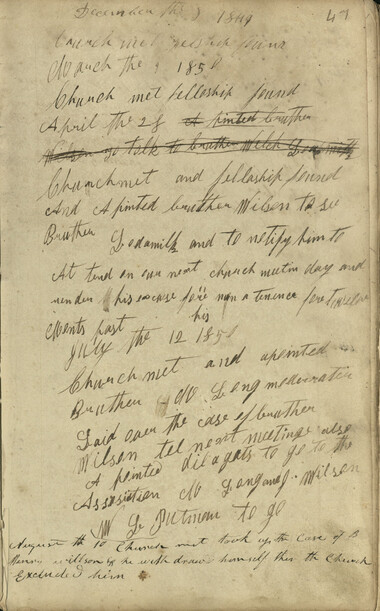 December the 8 1849
47
Church met felloship found
March the 1850
Church met felloship found
April the 28 A pinted bruther
Wilson to talk to bruther Welch
Church met and felloship found
And A pinted bruther Wilson to se
Bruther and to notify him to
At tend on our next church meetin day and
render his excuse for non a tenence for twelve
Ments past
his
July the 12 1850
Church met and apointed
Bruther W Long moderator
Laid over the case of bruther
Wilson tel next meeting also
A pointed diligats to go to the
Assosiation W Long and J Wilson
W L Pitman to go
August th 10 Church met took up the Case of B
willson & he with draw himself this th Church
Excluded him